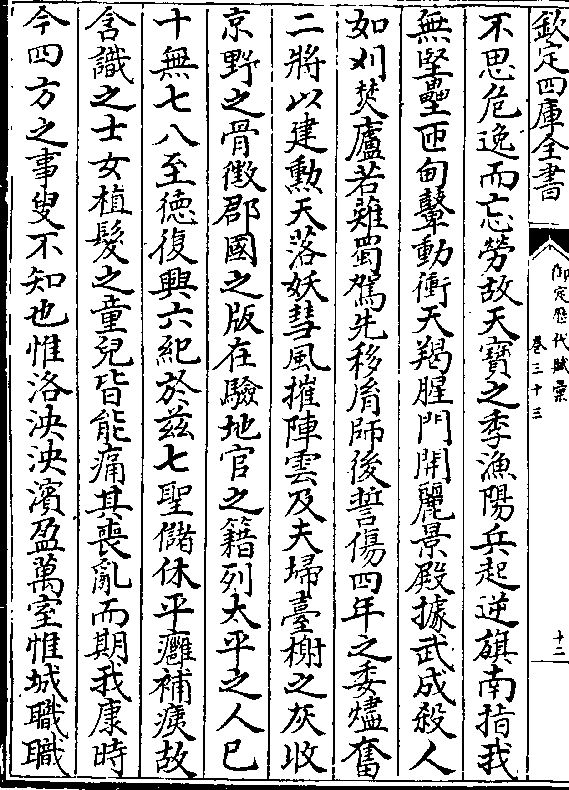 欽定四庫全書
御定歷代賦彙
卷三十三
十二
不思危逸而忘勞故天寶之季漁陽兵起逆旗南指我
無堅壘匝甸鼙動衝天羯腥門開麗景殿據武成殺人
如刈焚廬若雞蜀駕先移胤師後誓傷四年之委燼奮
二將以建勲天落妖彗風摧陣雲及夫埽臺榭之灰收
京野之骨徴郡國之版在驗地官之籍列太平之人已
十無七八至徳復興六紀於兹七聖儲休平癰補痍故
含識之士女植髮之童兒皆能痛其喪亂而期我康時
今四方之事叟不知也惟洛泱泱濱盈萬室惟城職職